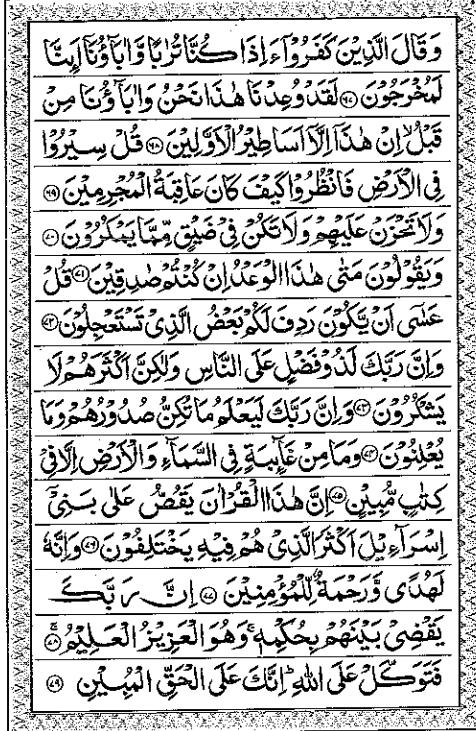 وَقَالَ الَّذِيْنَ كَفَرُوْٓا ءَاِذَا كُنَّا تُرٰبًا وَّاٰبَآؤُنَآ اَئِنَّا
لَمُخْرَجُوْنَ ﴿۶۷﴾ لَقَدْ وُعِدْنَا هٰذَا نَحْنُ وَاٰبَآؤُنَا مِنْ
قَبْلُ ۙ اِنْ هٰذَآ اِلَّآ اَسَاطِيْرُ الْاَوَّلِيْنَ ﴿۶۸﴾ قُلْ سِيْرُوْا
فِى الْاَرْضِ فَانْظُرُوْا كَيْفَ كَانَ عَاقِبَةُ الْمُجْرِمِيْنَ ﴿۶۹﴾
وَلَا تَحْزَنْ عَلَيْهِمْ وَلَا تَكُنْ فِىْ ضَيْقٍ مِّمَّا يَمْكُرُوْنَ ﴿۷۰﴾
وَيَقُوْلُوْنَ مَتٰى هٰذَا الْوَعْدُ اِنْ كُنْتُمْ صٰدِقِيْنَ ﴿۷۱﴾ قُلْ
عَسٰٓى اَنْ يَّكُوْنَ رَدِفَ لَكُمْ بَعْضُ الَّذِىْ تَسْتَعْجِلُوْنَ ﴿۷۲﴾
وَاِنَّ رَبَّكَ لَذُوْ فَضْلٍ عَلَى النَّاسِ وَلٰكِنَّ اَكْثَرَهُمْ لَا
يَشْكُرُوْنَ ﴿۷۳﴾ وَاِنَّ رَبَّكَ لَيَعْلَمُ مَا تُكِنُّ صُدُوْرُهُمْ وَمَا
يُعْلِنُوْنَ ﴿۷۴﴾ وَمَا مِنْ غَآئِبَةٍ فِى السَّمَآءِ وَالْاَرْضِ اِلَّا فِىْ
كِتٰبٍ مُّبِيْنٍ ﴿۷۵﴾ اِنَّ هٰذَا الْقُرْاٰنَ يَقُصُّ عَلٰى بَنِىْٓ
اِسْرَآءِيْلَ اَكْثَرَ الَّذِىْ هُمْ فِيْهِ يَخْتَلِفُوْنَ ﴿۷۶﴾ وَاِنَّهٗ
لَهُدًى وَّرَحْمَةٌ لِّلْمُؤْمِنِيْنَ ﴿۷۷﴾ اِنَّ رَبَّكَ
يَقْضِىْ بَيْنَهُمْ بِحُكْمِهٖ ۚ وَهُوَ الْعَزِيْزُ الْعَلِيْمُ ﴿۷۸﴾
فَتَوَكَّلْ عَلَى اللّٰهِ ؕ اِنَّكَ عَلَى الْحَقِّ الْمُبِيْنِ ﴿۷۹﴾